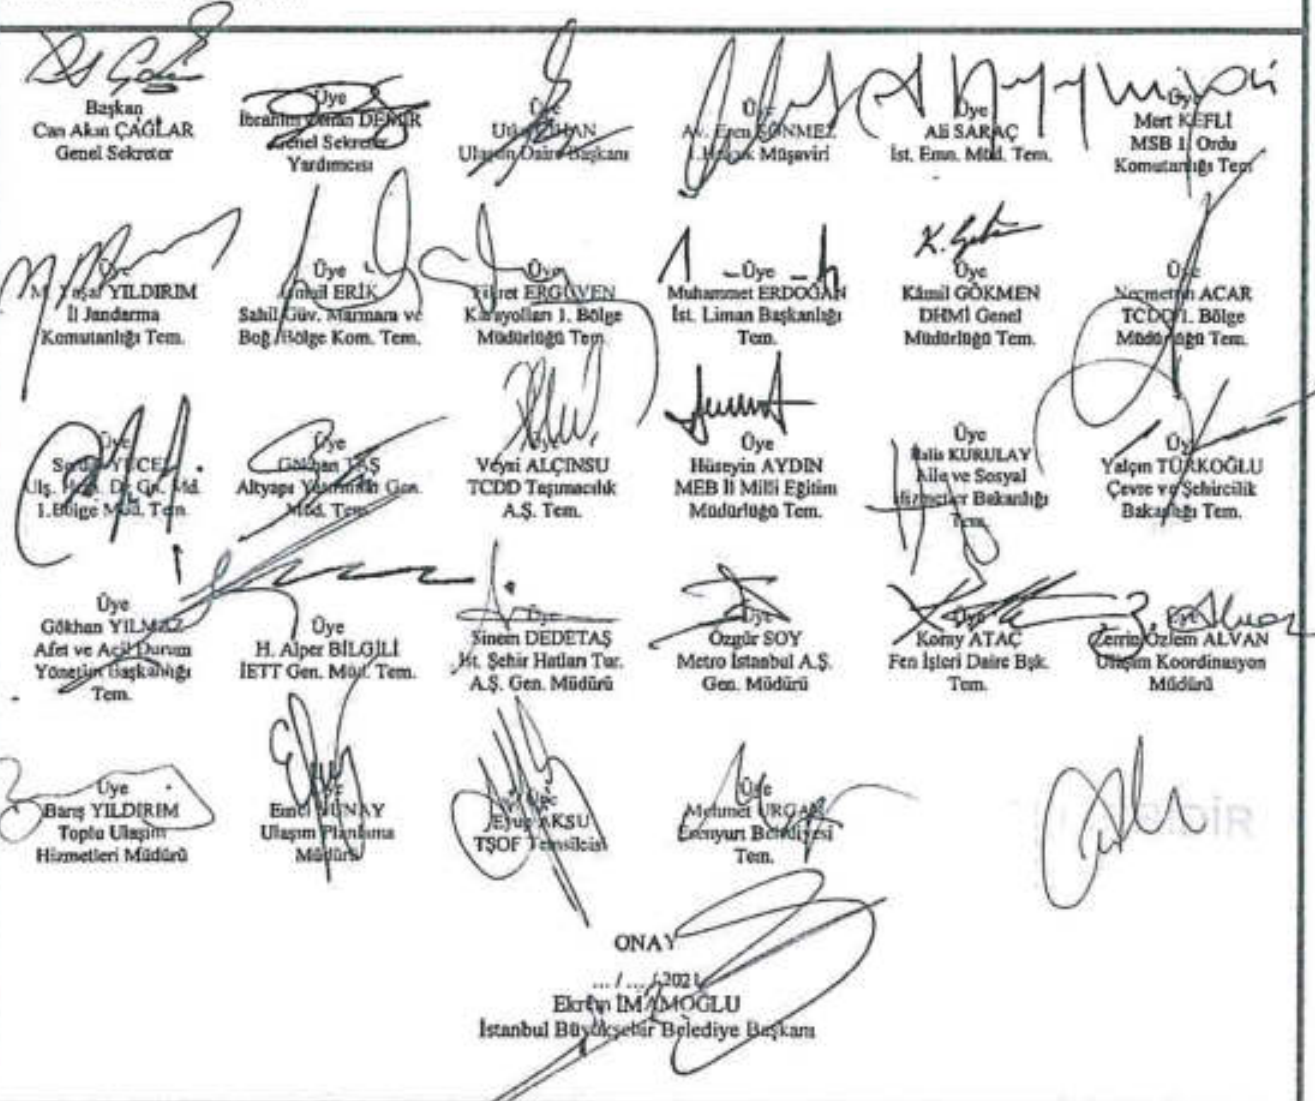 Başkan
Can Akın ÇAĞLAR
Genel Sekreter
Üye
İbrahim Orhan DEMİR
Genel Sekreter
Yardımcısı
Üye
Ulaşım Daire Başkanı
Üye
Av. Eren SÖNMEZ
1. Hukuk Müşaviri
Üye
Ali SARAÇ
İst. Emn. Müd. Tem.
Üye
Mert KEFLİ
MSB 1. Ordu
Komutanlığı Tem
Üye
M. Yaşar YILDIRIM
İl Jandarma
Komutanlığı Tem.
Üye
İsmail ERİK
Sahil Güv. Marmara ve
Boğ. Bölge Kom. Tem.
Üye
Fikret ERGÜVEN
Karayolları 1. Bölge
Müdürlüğü Tem.
Üye
Muhammet ERDOĞAN
İst. Liman Başkanlığı
Tem.
K.
Üye
Kâmil GÖKMEN
DHMİ Genel
Müdürlüğü Tem.
Üye
Necmettin ACAR
TCDD 1. Bölge
Müdürlüğü Tem.
Üye
YÜCEL
1.Bölge Müd. Tem.
Üye
Gökhan TAŞ
Altyapı Yatırımları Gen.
Müd. Tem.
Üye
Veysi ALÇINSU
TCDD Taşımacılık
A.Ş. Tem.
Üye
Hüseyin AYDIN
MEB İl Milli Eğitim
Müdürlüğü Tem.
Üye
Halis KURULAY
Aile ve Sosyal
Hizmetler Bakanlığı
Tem.
Üye
Yalçın TÜRKOĞLU
Çevre ve Şehircilik
Bakanlığı Tem.
Üye
Gökhan YILMAZ
Afet ve Acil Durum
Yönetim Başkanlığı
Tem.
Üye
H. Alper BİLGİLİ
İETT Gen. Müd. Tem.
Üye
Sinem DEDETAŞ
İst. Şehir Hatları Tur.
A.Ş. Gen. Müdürü
Üye
Özgür SOY
Metro İstanbul A.Ş.
Gen. Müdürü
Üye
Koray ATAÇ
Fen İşleri Daire Bşk.
Tem.
Zerrin Özlem ALVAN
Ulaşım Koordinasyon
Müdürü
Üye
Barış YILDIRIM
Toplu Ulaşım
Hizmetleri Müdürü
Üye
Ulaşım Planlama
Müdürü
Üye
Eyup AKSU
TŞOF Temsilcisi
Üye
Mehmet URGAN
Esenyurt Belediyesi
Tem.
ONAY
... / ... /2021
Ekrem İMAMOĞLU
İstanbul Büyükşehir Belediye Başkanı